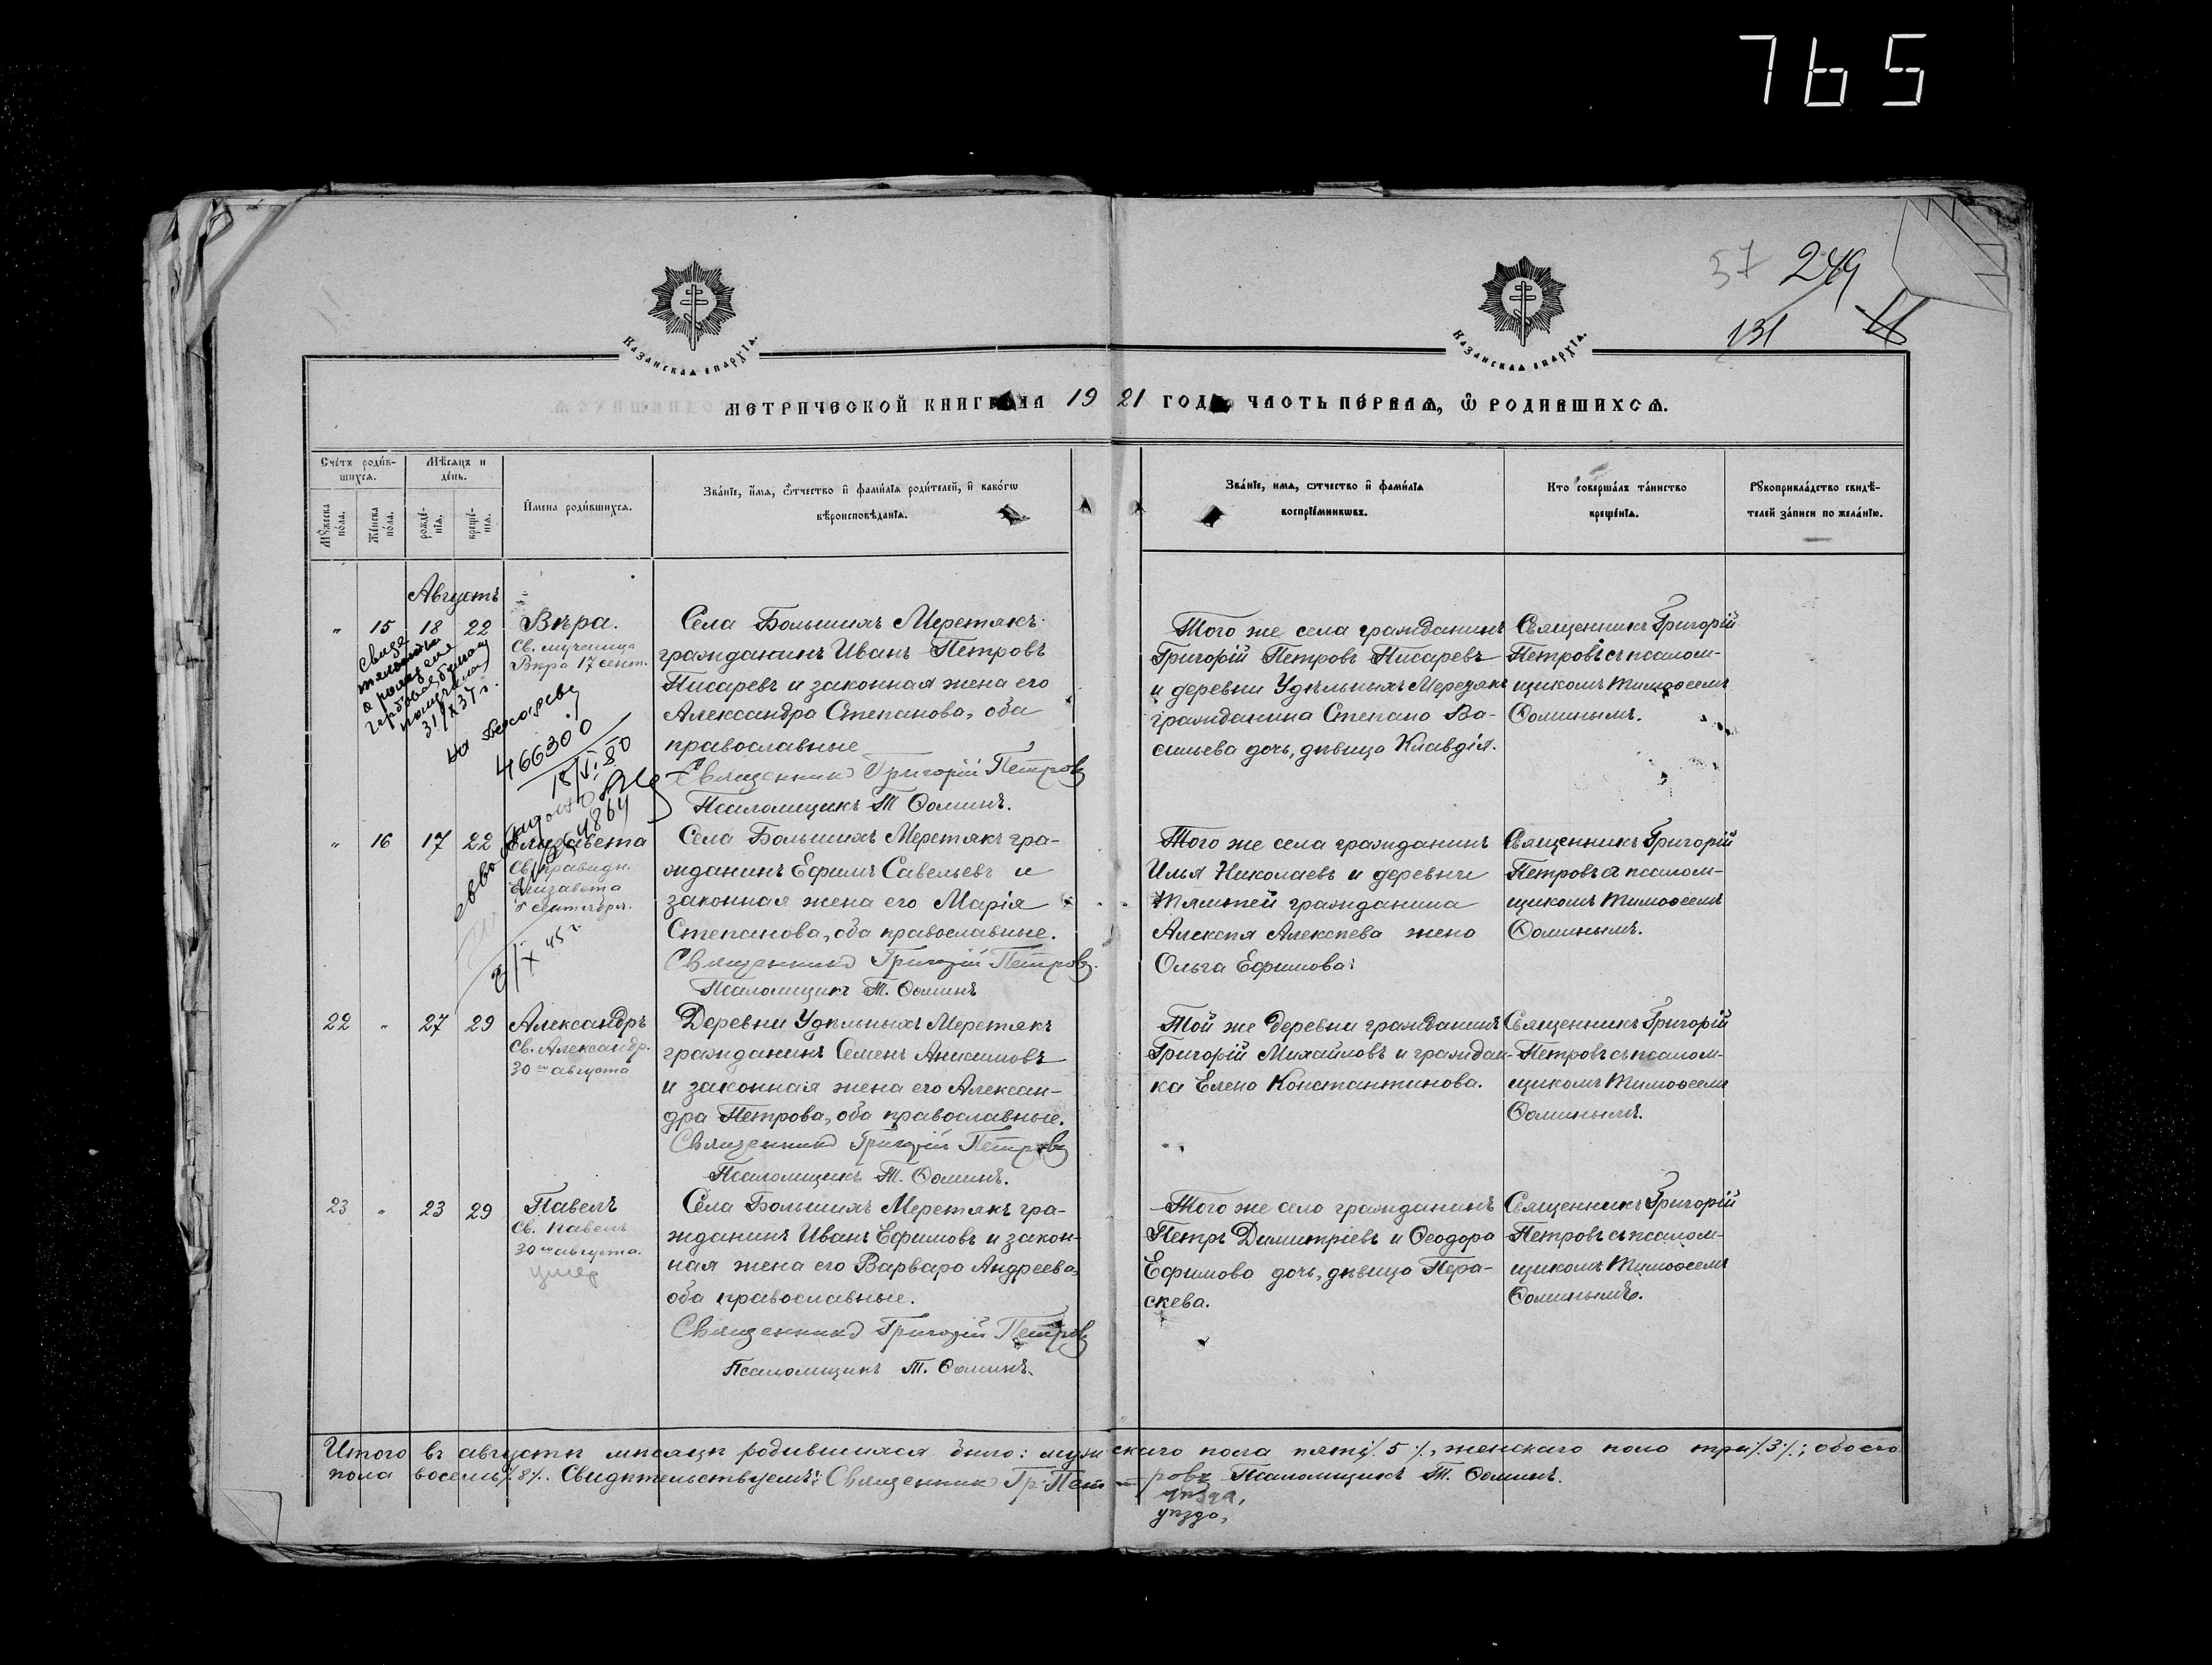 765
57 249
131
Казанская епархїѧ.
Казанская епархїѧ.
МЕТРИЧЕСКОЙ КНИГИ НА 1921 ГОДЪ ЧАСТЬ ПЕРВАЯ, Ѽ РОДИВШИХСѦ.
Счётъ роди́в-
шихсѧ.
Мꙋ́жеска по́ла.
Же́нска по́ла.
Мѣ́сяцъ и
де́нь.
рожде́-
нїѧ.
креще́-
нїѧ.
И҆мена̀ роди́вшихсѧ.
Зва́нїе, и҆́мѧ, ѻ҆́тчество и҆ фами́лїѧ роди́телей, и҆ како́гѡ
вѣроисповѣ́данїѧ.
Зва́нїе, имѧ, ѻтчество и҆ фами́лїѧ
воспрїе́мникѡвъ.
Кто̀ соверша́лъ та́инство
креще́нїѧ.
Рꙋкоприкла́дство свидѣ́-
телей за́писи по жела́нїю.
Августъ
„ 15 18 22 Вѣра.
Св. мученица
Вѣра 17 сент.
Села Большихъ Меретякъ
гражданинъ Иванъ Петровъ
Писаревъ и законная жена его
Александра Степанова, оба
православные
Священникъ Григорій Петровъ
Псаломщикъ Т Ѳоминъ.
Того же села гражданинъ
Григорій Петровъ Писаревъ
и деревни Удѣльныхъ Меретякъ
гражданина Степана Ва-
сильева дочь, дѣвица Клавдія.
Священникъ Григорій
Петровъ съ псалом-
щикомъ Тимоѳеемъ
Ѳоминымъ.
31/X 37 г.
466300
18/VI 80
„ 16 17 22 Елизавета
Св. праведн.
Елизавета
5 сентября.
Села Большихъ Меретякъ гра-
жданинъ Ефимъ Савельевъ и
законная жена его Марія
Степанова, оба православные.
Священникъ Григорій Петровъ
Псаломщикъ Т. Ѳоминъ
Того же села гражданинъ
Илья Николаевъ и деревни
гражданина
Алексѣя Алексѣева жена
Ольга Ефимова.
Священникъ Григорій
Петровъ съ псалом-
щикомъ Тимоѳеемъ
Ѳоминымъ.
22 „ 27 29 Александръ
Св. Александр.
30го августа
Деревни Удѣльныхъ Меретякъ
гражданинъ Семенъ Анисимовъ
и законная жена его Алексан-
дра Петрова, оба православные.
Священникъ Григорій Петровъ
Псаломщикъ Т. Ѳоминъ.
Той же деревни гражданинъ
Григорій Михайловъ и граждан-
ка Елена Константинова.
Священникъ Григорій
Петровъ съ псалом-
щикомъ Тимоѳеемъ
Ѳоминымъ.
23 „ 23 29 Павелъ
Св. Павелъ
30го августа.
умер
Села Большихъ Меретякъ гра-
жданинъ Иванъ Ефимовъ и закон-
ная жена его Варвара Андреева,
оба православные.
Священникъ Григорій Петровъ
Псаломщикъ Т. Ѳоминъ.
Того же села гражданинъ
Петръ Димитріевъ и Ѳеодора
Ефимова дочь, дѣвица Пара-
скева.
Священникъ Григорій
Петровъ съ псалом-
щикомъ Тимоѳеемъ
Ѳоминымъ.
Итого въ августѣ мѣсяцѣ родившихся было: мужскаго пола пять ./. 5 ./., женскаго пола три ./. 3 ./.; обоего
пола восемь ./. 8 ./. Свидѣтельствуемъ: Священникъ Гр. Петровъ Псаломщикъ Т. Ѳоминъ.
уѣзда,
уѣзда,